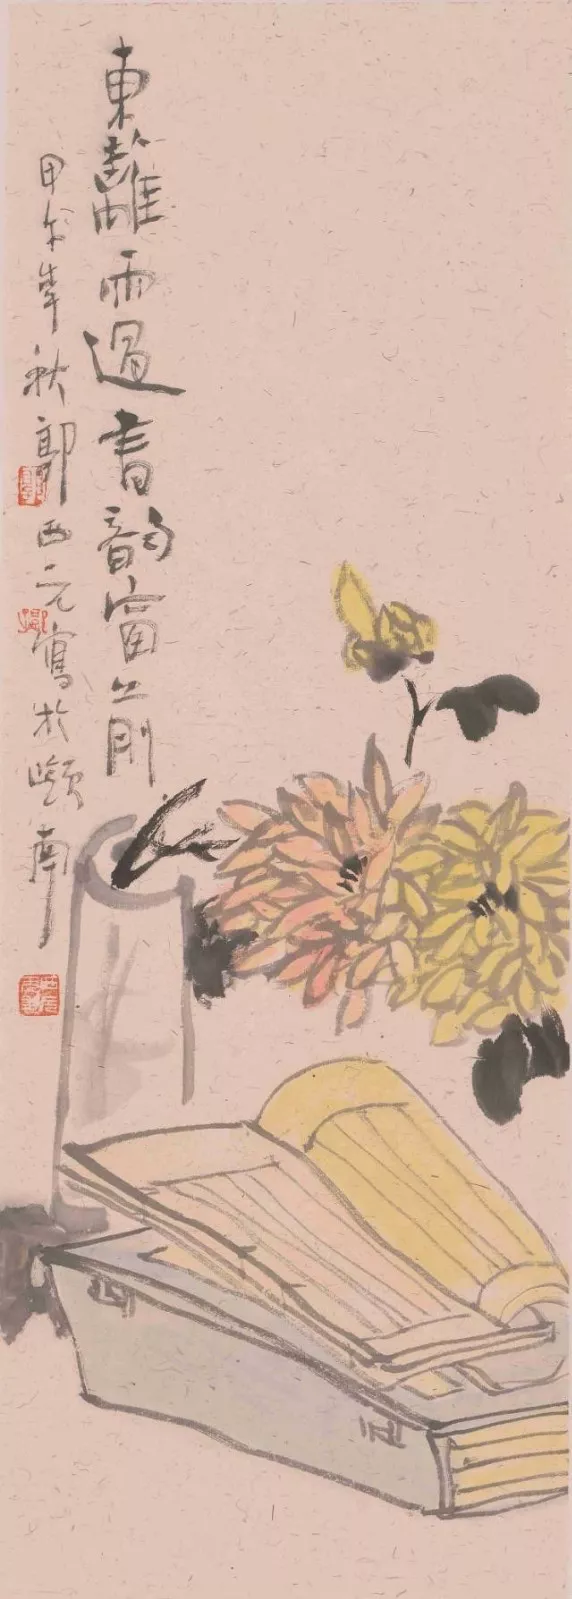 東籬雨過書韵窗前
甲午年秋郭西元寫於嶺南